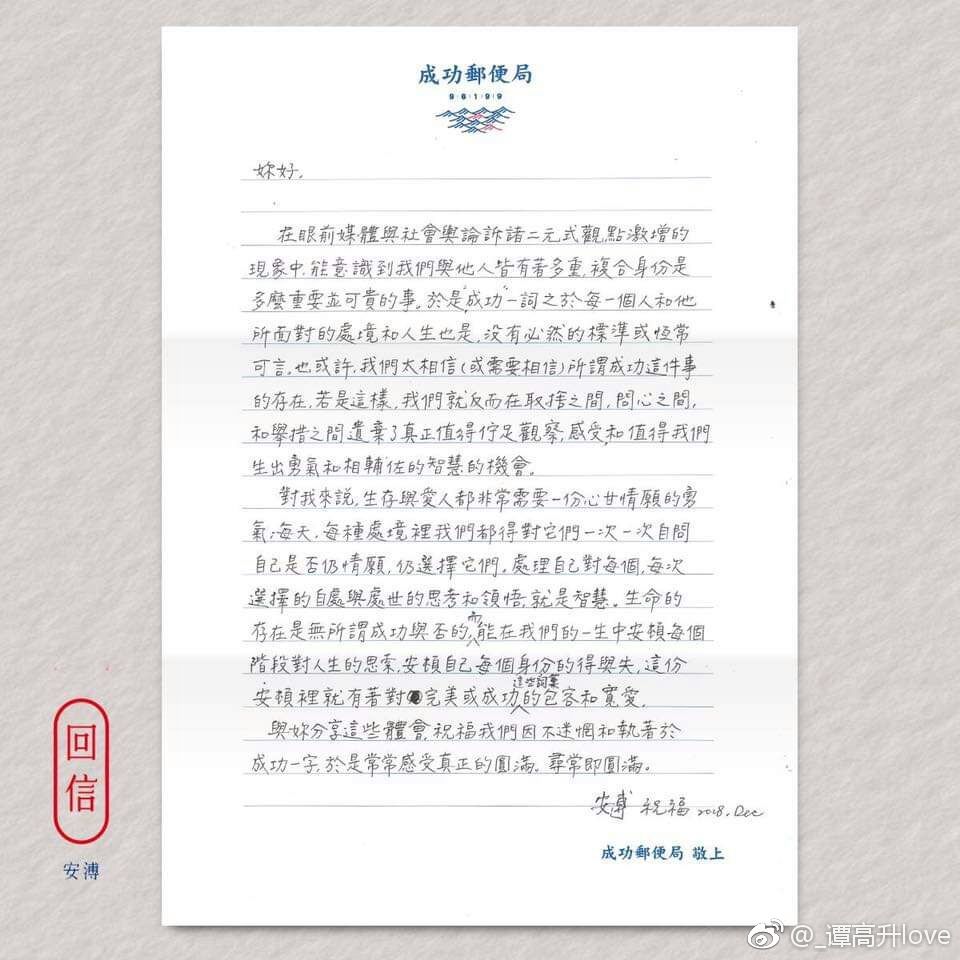 成功郵便局
96199
妳好,
在眼前媒體與社會輿論訴諸二元式觀點激增的
現象中,能意識到我們與他人皆有著多重,複合身份是
多麼重要並可貴的事。於是"成功"一詞之於每一個人和他
所面對的處境和人生也是,沒有必然的標準或恆常
可言。也或許,我們太相信(或需要相信)所謂成功這件事
的存在,若是這樣,我們就反而在取捨之間,問心之間,
和舉措之間遺棄了真正值得佇足觀察,感受,和值得我們
生出勇氣和相輔佐的智慧的機會。
對我來說,生存與愛人都非常需要一份心甘情願的勇
氣,每天,每種處境裡我們都得對它們一次一次自問
自己是否仍情願,仍選擇它們。處理自己對每個,每次
選擇的自處與處世的思考和領悟,就是智慧。生命的
存在是無所謂成功與否的,而能在我們的一生中安頓每個
階段對人生的思索,安頓自己每個身份的得與失,這份
安頓裡就有著對完美或成功這些詞彙的包容和寬愛。
與妳分享這些體會,祝福我們因不迷惘和執著於
成功一字,於是常常感受真正的圓滿。尋常即圓滿。
安溥 祝福 2018.Dec
成功郵便局 敬上
回信
安溥
@_谭高升love